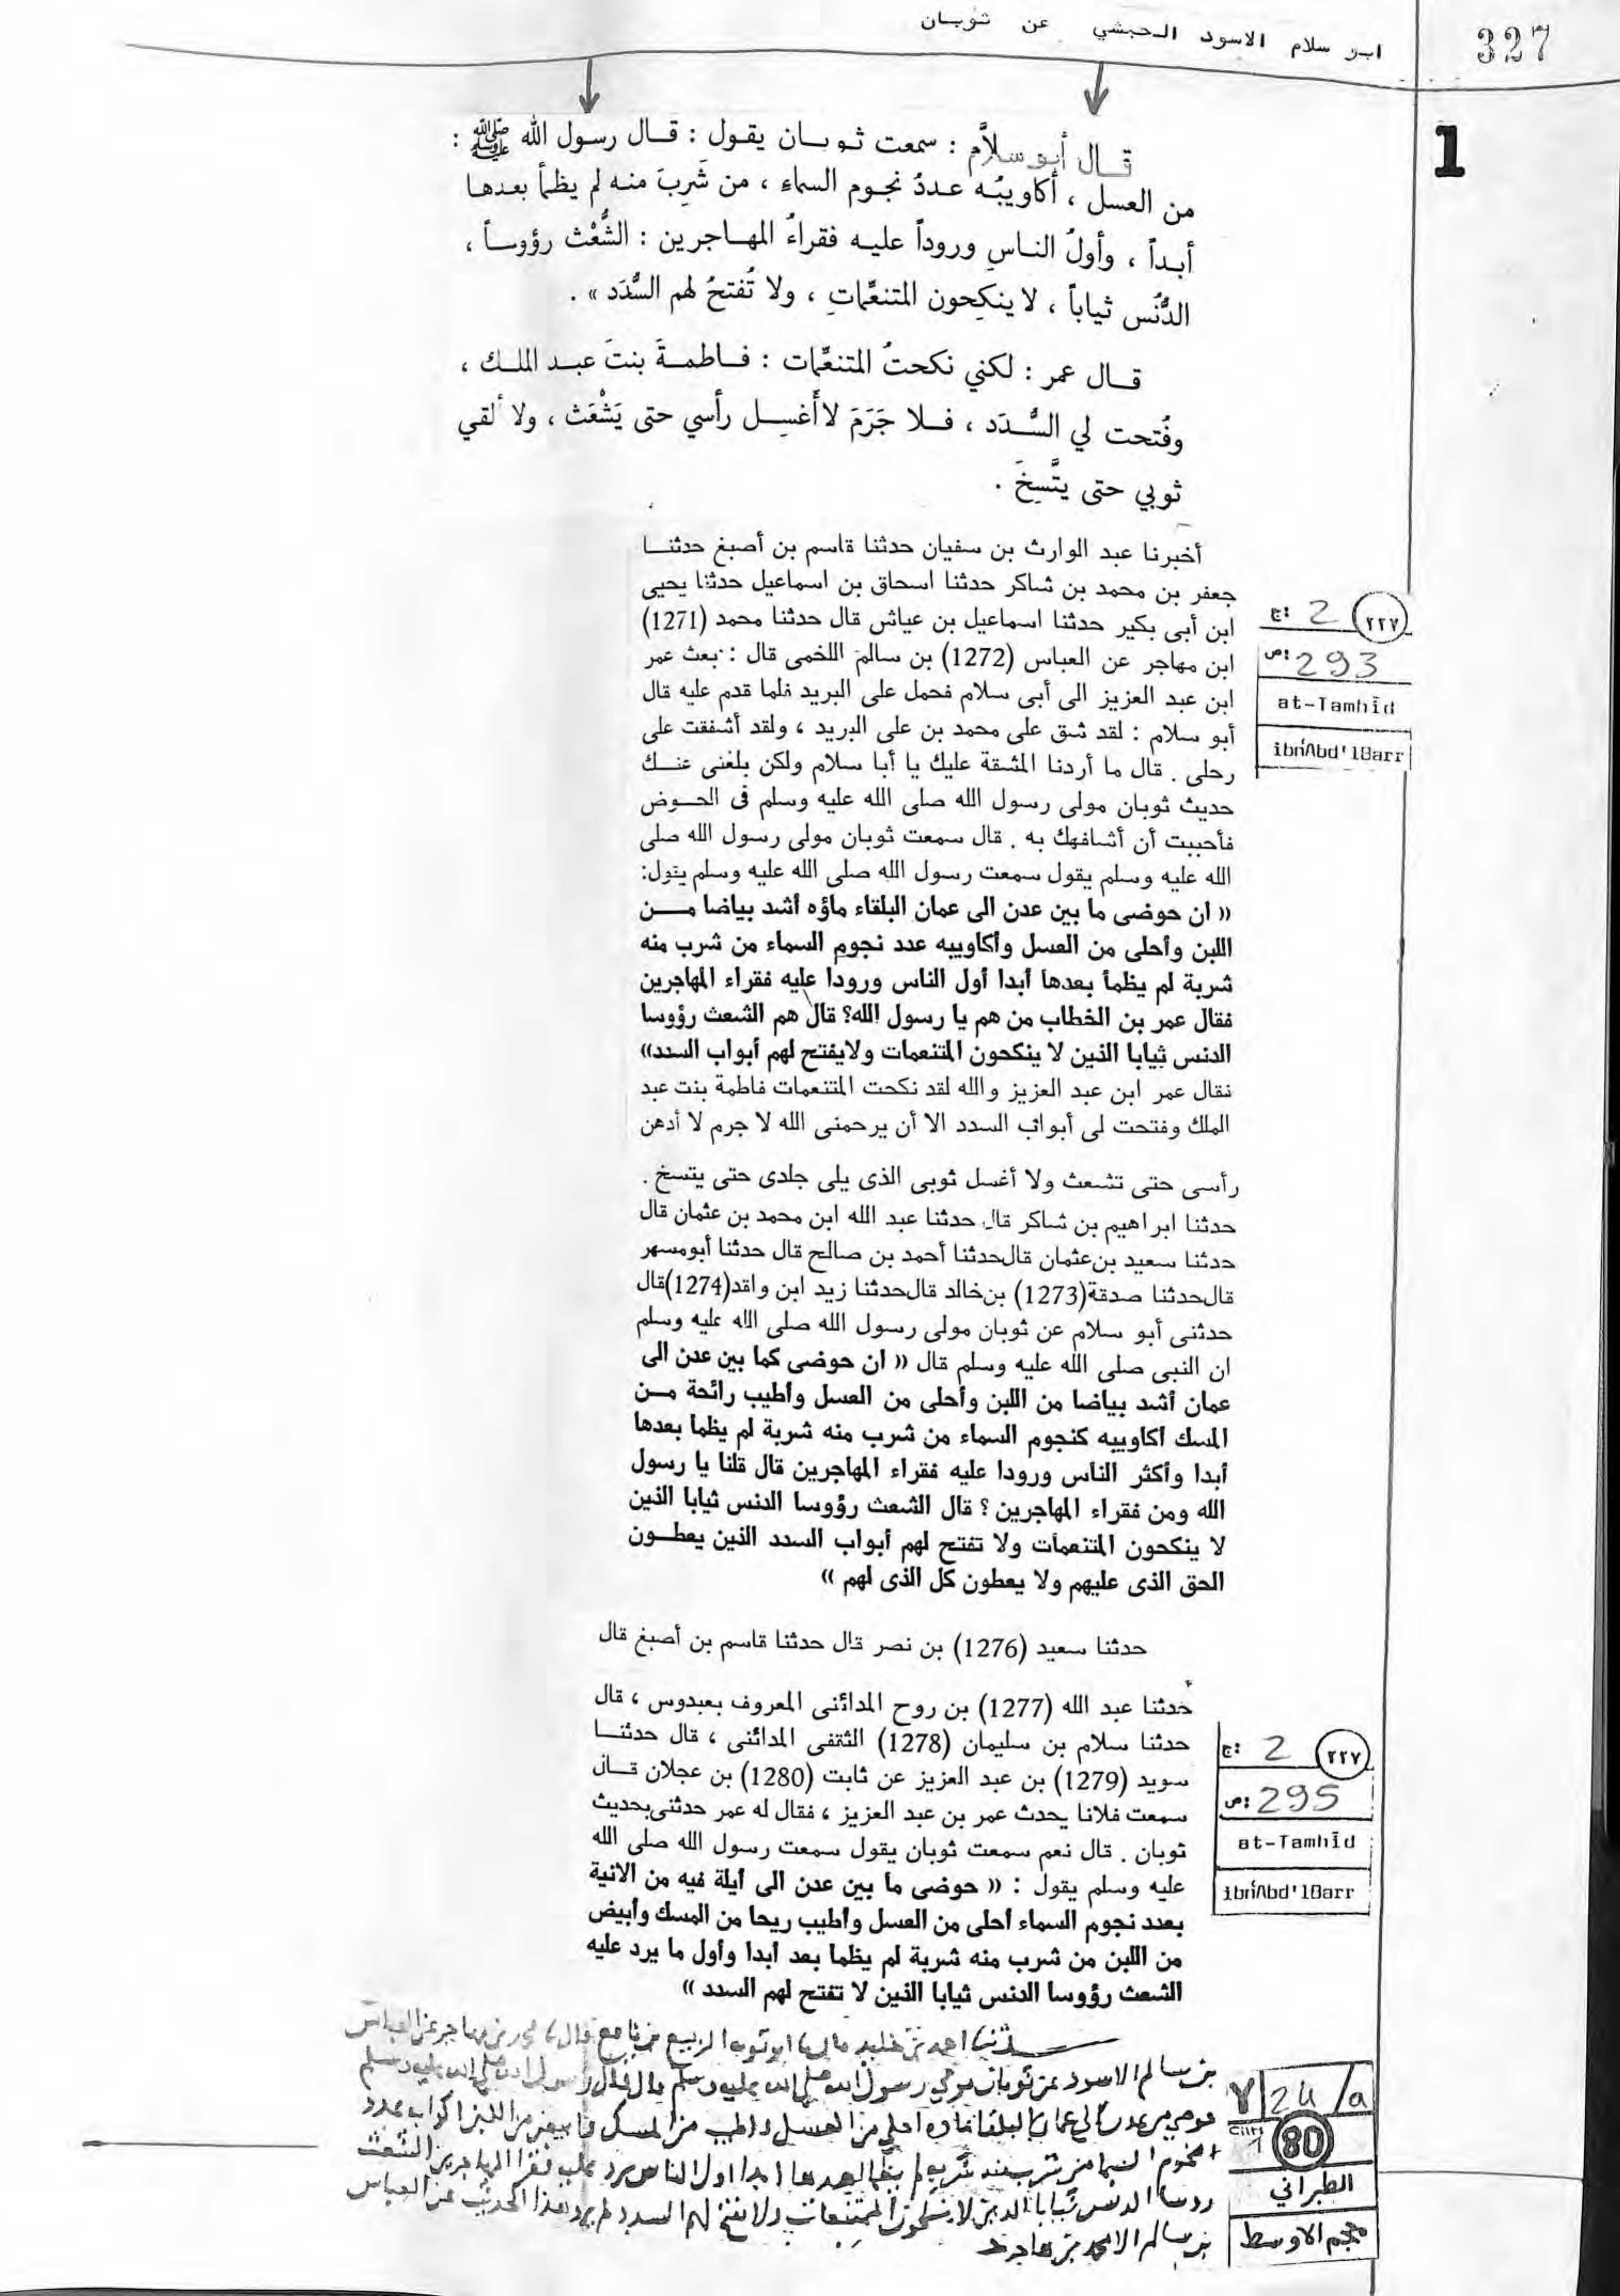 327
ابو سلام الاسود الحبشي عن ثوبان
1
قال أبو سلاَّم : سمعت ثوبان يقول : قال رسول الله ﷺ :
من العسل ، أكاويبُه عددُ نجوم السماء ، من شَرِبَ منه لم يظمأ بعدها
أبداً ، وأولُ الناسِ وروداً عليه فقراءُ المهاجرين : الشُّعْث رؤوساً ،
الدُّنُس ثياباً ، لا ينكِحون المتنعِّماتِ ، ولا تُفتحُ لهم السُّدَد » .
قال عمر : لكني نكحتُ المتنعِّمات : فاطمةَ بنتَ عبد الملك ،
وفُتحت لي السُّدَد ، فلا جَرَمَ لا أَغسِل رأسي حتى يَشْعَث ، ولا ألقي
ثوبي حتى يتَّسِخَ .
أخبرنا عبد الوارث بن سفيان حدثنا قاسم بن أصبغ حدثنا
جعفر بن محمد بن شاكر حدثنا اسحاق بن اسماعيل حدثنا يحيى
ابن أبى بكير حدثنا اسماعيل بن عياش قال حدثنا محمد (1271)
ابن مهاجر عن العباس (1272) بن سالم اللخمى قال : بعث عمر
ابن عبد العزيز الى أبى سلام فحمل على البريد فلما قدم عليه قال
أبو سلام : لقد شق على محمد بن على البريد ، ولقد أشفقت على
رحلى . قال ما أردنا المشقة عليك يا أبا سلام ولكن بلغنى عنك
حديث ثوبان مولى رسول الله صلى الله عليه وسلم فى الحوض
فأحببت أن أشافهك به . قال سمعت ثوبان مولى رسول الله صلى
الله عليه وسلم يقول سمعت رسول الله صلى الله عليه وسلم يقول:
« ان حوضى ما بين عدن الى عمان البلقاء ماؤه أشد بياضا من
اللبن وأحلى من العسل وأكاويبه عدد نجوم السماء من شرب منه
شربة لم يظمأ بعدها أبدا أول الناس ورودا عليه فقراء المهاجرين
فقال عمر بن الخطاب من هم يا رسول الله؟ قال هم الشعث رؤوسا
الدنس ثيابا الذين لا ينكحون المتنعمات ولايفتح لهم أبواب السدد»
فقال عمر ابن عبد العزيز والله لقد نكحت المتنعمات فاطمة بنت عبد
الملك وفتحت لى أبواب السدد الا أن يرحمنى الله لا جرم لا أدهن
رأسى حتى تشعث ولا أغسل ثوبى الذى يلى جلدى حتى يتسخ .
حدثنا ابراهيم بن شاكر قال حدثنا عبد الله ابن محمد بن عثمان قال
حدثنا سعيد بن عثمان قال حدثنا أحمد بن صالح قال حدثنا أبومسهر
قال حدثنا صدقة (1273) بن خالد قال حدثنا زيد ابن واقد (1274) قال
حدثنى أبو سلام عن ثوبان مولى رسول الله صلى الله عليه وسلم
ان النبى صلى الله عليه وسلم قال « ان حوضى كما بين عدن الى
عمان أشد بياضا من اللبن وأحلى من العسل وأطيب رائحة من
المسك أكاويبه كنجوم السماء من شرب منه شربة لم يظما بعدها
أبدا وأكثر الناس ورودا عليه فقراء المهاجرين قال قلنا يا رسول
الله ومن فقراء المهاجرين ؟ قال الشعث رؤوسا الدنس ثيابا الذين
لا ينكحون المتنعمات ولا تفتح لهم أبواب السدد الذين يعطون
الحق الذى عليهم ولا يعطون كل الذى لهم »
٢٢٧ ج: 2
ص: 293
at-Tamhīd
ibn'Abd'lBarr
حدثنا سعيد (1276) بن نصر قال حدثنا قاسم بن أصبغ قال
حدثنا عبد الله (1277) بن روح المدائنى المعروف بعبدوس ، قال
حدثنا سلام بن سليمان (1278) الثقفى المدائنى ، قال حدثنا
سويد (1279) بن عبد العزيز عن ثابت (1280) بن عجلان قال
سمعت فلانا يحدث عمر بن عبد العزيز ، فقال له عمر حدثنى بحديث
ثوبان . قال نعم سمعت ثوبان يقول سمعت رسول الله صلى الله
عليه وسلم يقول : « حوضى ما بين عدن الى أيلة فيه من الانية
بعدد نجوم السماء أحلى من العسل وأطيب ريحا من المسك وأبيض
من اللبن من شرب منه شربة لم يظما بعد أبدا وأول ما يرد عليه
الشعث رؤوسا الدنس ثيابا الذين لا تفتح لهم السدد »
٢٢٧ ج: 2
ص: 295
at-Tamhīd
ibn'Abd'lBarr
احمد بن خليد ابو توبه الربيع بن نافع قال محمد بن مهاجر عن العباس
بن سالم الاسود عن ثوبان مولى رسول الله صلى الله عليه وسلم قال قال رسول الله صلى الله عليه وسلم
حوضي من عدن الى عمان البلقا ماوه احلى من العسل واطيب من المسك وابيض من اللبن اكوابه عدد
النجوم من شرب منه شربه لم يظما بعدها ابدا اول الناس يرد عليه فقرا المهاجرين الشعث
روسا الدنس ثيابا الذين لا ينكحون المتنعمات ولا تفتح لهم السدد لم يرو هذا الحديث عن العباس
بن سالم الا محمد بن مهاجر
٧ 24/a
Cilt 1 80
الطبراني
معجم الاوسط